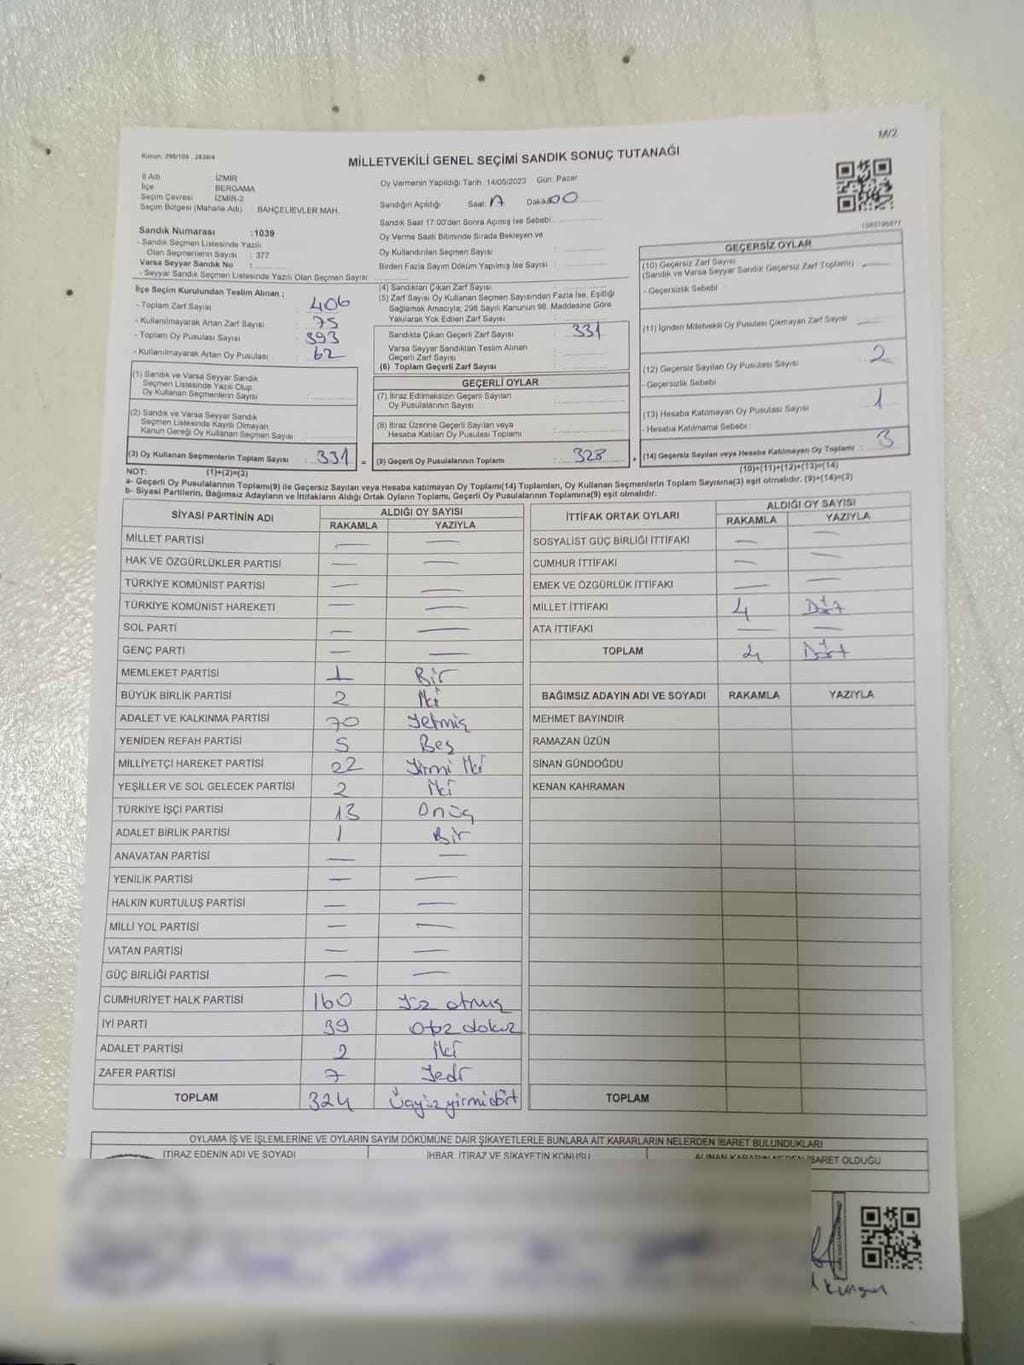 M/2
Kanun: 298/105 : 2839/4
MİLLETVEKİLİ GENEL SEÇİMİ SANDIK SONUÇ TUTANAĞI
İl Adı : İZMİR
İlçe : BERGAMA
Seçim Çevresi : İZMİR-2
Seçim Bölgesi (Mahalle Adı) : BAHÇELİEVLER MAH.
Oy Vermenin Yapıldığı Tarih :14/05/2023 Gün: Pazar
Sandığın Açıldığı Saat: 17 Dakika: 00
Sandık Saat 17:00'den Sonra Açılmış İse Sebebi :
Oy Verme Saati Bitiminde Sırada Bekleyen ve
Oy Kullandırılan Seçmen Sayısı :
Birden Fazla Sayım Döküm Yapılmış İse Sayısı :
Sandık Numarası :1039
- Sandık Seçmen Listesinde Yazılı
Olan Seçmenlerin Sayısı : 377
Varsa Seyyar Sandık No :
- Seyyar Sandık Seçmen Listesinde Yazılı Olan Seçmen Sayısı :
İlçe Seçim Kurulundan Teslim Alınan ;
- Toplam Zarf Sayısı : 406
- Kullanılmayarak Artan Zarf Sayısı : 75
- Toplam Oy Pusulası Sayısı : 393
- Kullanılmayarak Artan Oy Pusulası : 62
(1) Sandık ve Varsa Seyyar Sandık
Seçmen Listesinde Yazılı Olup
Oy Kullanan Seçmenlerin Sayısı :
(2) Sandık ve Varsa Seyyar Sandık
Seçmen Listesinde Kayıtlı Olmayan
Kanun Gereği Oy Kullanan Seçmen Sayısı :
(3) Oy Kullanan Seçmenlerin Toplam Sayısı : 331
(1)+(2)=(3)
(4) Sandıktan Çıkan Zarf Sayısı :
(5) Zarf Sayısı Oy Kullanan Seçmen Sayısından Fazla İse, Eşitliği
Sağlamak Amacıyla; 298 Sayılı Kanunun 98. Maddesine Göre
Yakılarak Yok Edilen Zarf Sayısı :
Sandıkta Çıkan Geçerli Zarf Sayısı : 331
Varsa Seyyar Sandıktan Teslim Alınan
Geçerli Zarf Sayısı :
(6) Toplam Geçerli Zarf Sayısı :
GEÇERLİ OYLAR
(7) İtiraz Edilmeksizin Geçerli Sayılan
Oy Pusulalarının Sayısı :
(8) İtiraz Üzerine Geçerli Sayılan veya
Hesaba Katılan Oy Pusulası Toplamı :
= (9) Geçerli Oy Pusulalarının Toplamı : 328 +
GEÇERSİZ OYLAR
(10) Geçersiz Zarf Sayısı :
(Sandık ve Varsa Seyyar Sandık Geçersiz Zarf Toplamı)
- Geçersizlik Sebebi :
(11) İçinden Milletvekili Oy Pusulası Çıkmayan Zarf Sayısı :
(12) Geçersiz Sayılan Oy Pusulası Sayısı : 2
- Geçersizlik Sebebi :
(13) Hesaba Katılmayan Oy Pusulası Sayısı : 1
- Hesaba Katılmama Sebebi :
(14) Geçersiz Sayılan veya Hesaba Katılmayan Oy Toplamı : 3
(10)+(11)+(12)+(13)=(14)
NOT:
a- Geçerli Oy Pusulalarının Toplamı(9) ile Geçersiz Sayılan veya Hesaba katılmayan Oy Toplamı(14) Toplamları, Oy Kullanan Seçmenlerin Toplam Sayısına(3) eşit olmalıdır. (9)+(14)=(3)
b- Siyasi Partilerin, Bağımsız Adayların ve İttifakların Aldığı Ortak Oyların Toplamı, Geçerli Oy Pusulalarının Toplamına(9) eşit olmalıdır.
SİYASİ PARTİNİN ADI ALDIĞI OY SAYISI
RAKAMLA YAZIYLA
MİLLET PARTİSİ — —
HAK VE ÖZGÜRLÜKLER PARTİSİ — —
TÜRKİYE KOMÜNİST PARTİSİ — —
TÜRKİYE KOMÜNİST HAREKETİ — —
SOL PARTİ — —
GENÇ PARTİ — —
MEMLEKET PARTİSİ 1 Bir
BÜYÜK BİRLİK PARTİSİ 2 İki
ADALET VE KALKINMA PARTİSİ 70 Yetmiş
YENİDEN REFAH PARTİSİ 5 Beş
MİLLİYETÇİ HAREKET PARTİSİ 22 Yirmi İki
YEŞİLLER VE SOL GELECEK PARTİSİ 2 İki
TÜRKİYE İŞÇİ PARTİSİ 13 Onüç
ADALET BİRLİK PARTİSİ 1 Bir
ANAVATAN PARTİSİ — —
YENİLİK PARTİSİ — —
HALKIN KURTULUŞ PARTİSİ — —
MİLLİ YOL PARTİSİ — —
VATAN PARTİSİ — —
GÜÇ BİRLİĞİ PARTİSİ — —
CUMHURİYET HALK PARTİSİ 160 Yüz atmış
İYİ PARTİ 39 Otuz dokuz
ADALET PARTİSİ 2 İki
ZAFER PARTİSİ 7 Yedi
TOPLAM 324 Üçyüzyirmidört
İTTİFAK ORTAK OYLARI ALDIĞI OY SAYISI
RAKAMLA YAZIYLA
SOSYALİST GÜÇ BİRLİĞİ İTTİFAKI — —
CUMHUR İTTİFAKI — —
EMEK VE ÖZGÜRLÜK İTTİFAKI — —
MİLLET İTTİFAKI 4 Dört
ATA İTTİFAKI — —
TOPLAM 4 Dört
BAĞIMSIZ ADAYIN ADI VE SOYADI RAKAMLA YAZIYLA
MEHMET BAYINDIR
RAMAZAN ÜZÜN
SİNAN GÜNDOĞDU
KENAN KAHRAMAN
TOPLAM
OYLAMA İŞ VE İŞLEMLERİNE VE OYLARIN SAYIM DÖKÜMÜNE DAİR ŞİKAYETLERLE BUNLARA AİT KARARLARIN NELERDEN İBARET BULUNDUKLARI
İTİRAZ EDENİN ADI VE SOYADI İHBAR, İTİRAZ VE ŞİKAYETİN KONUSU ALINAN KARARIN NEDEN İBARET OLDUĞU